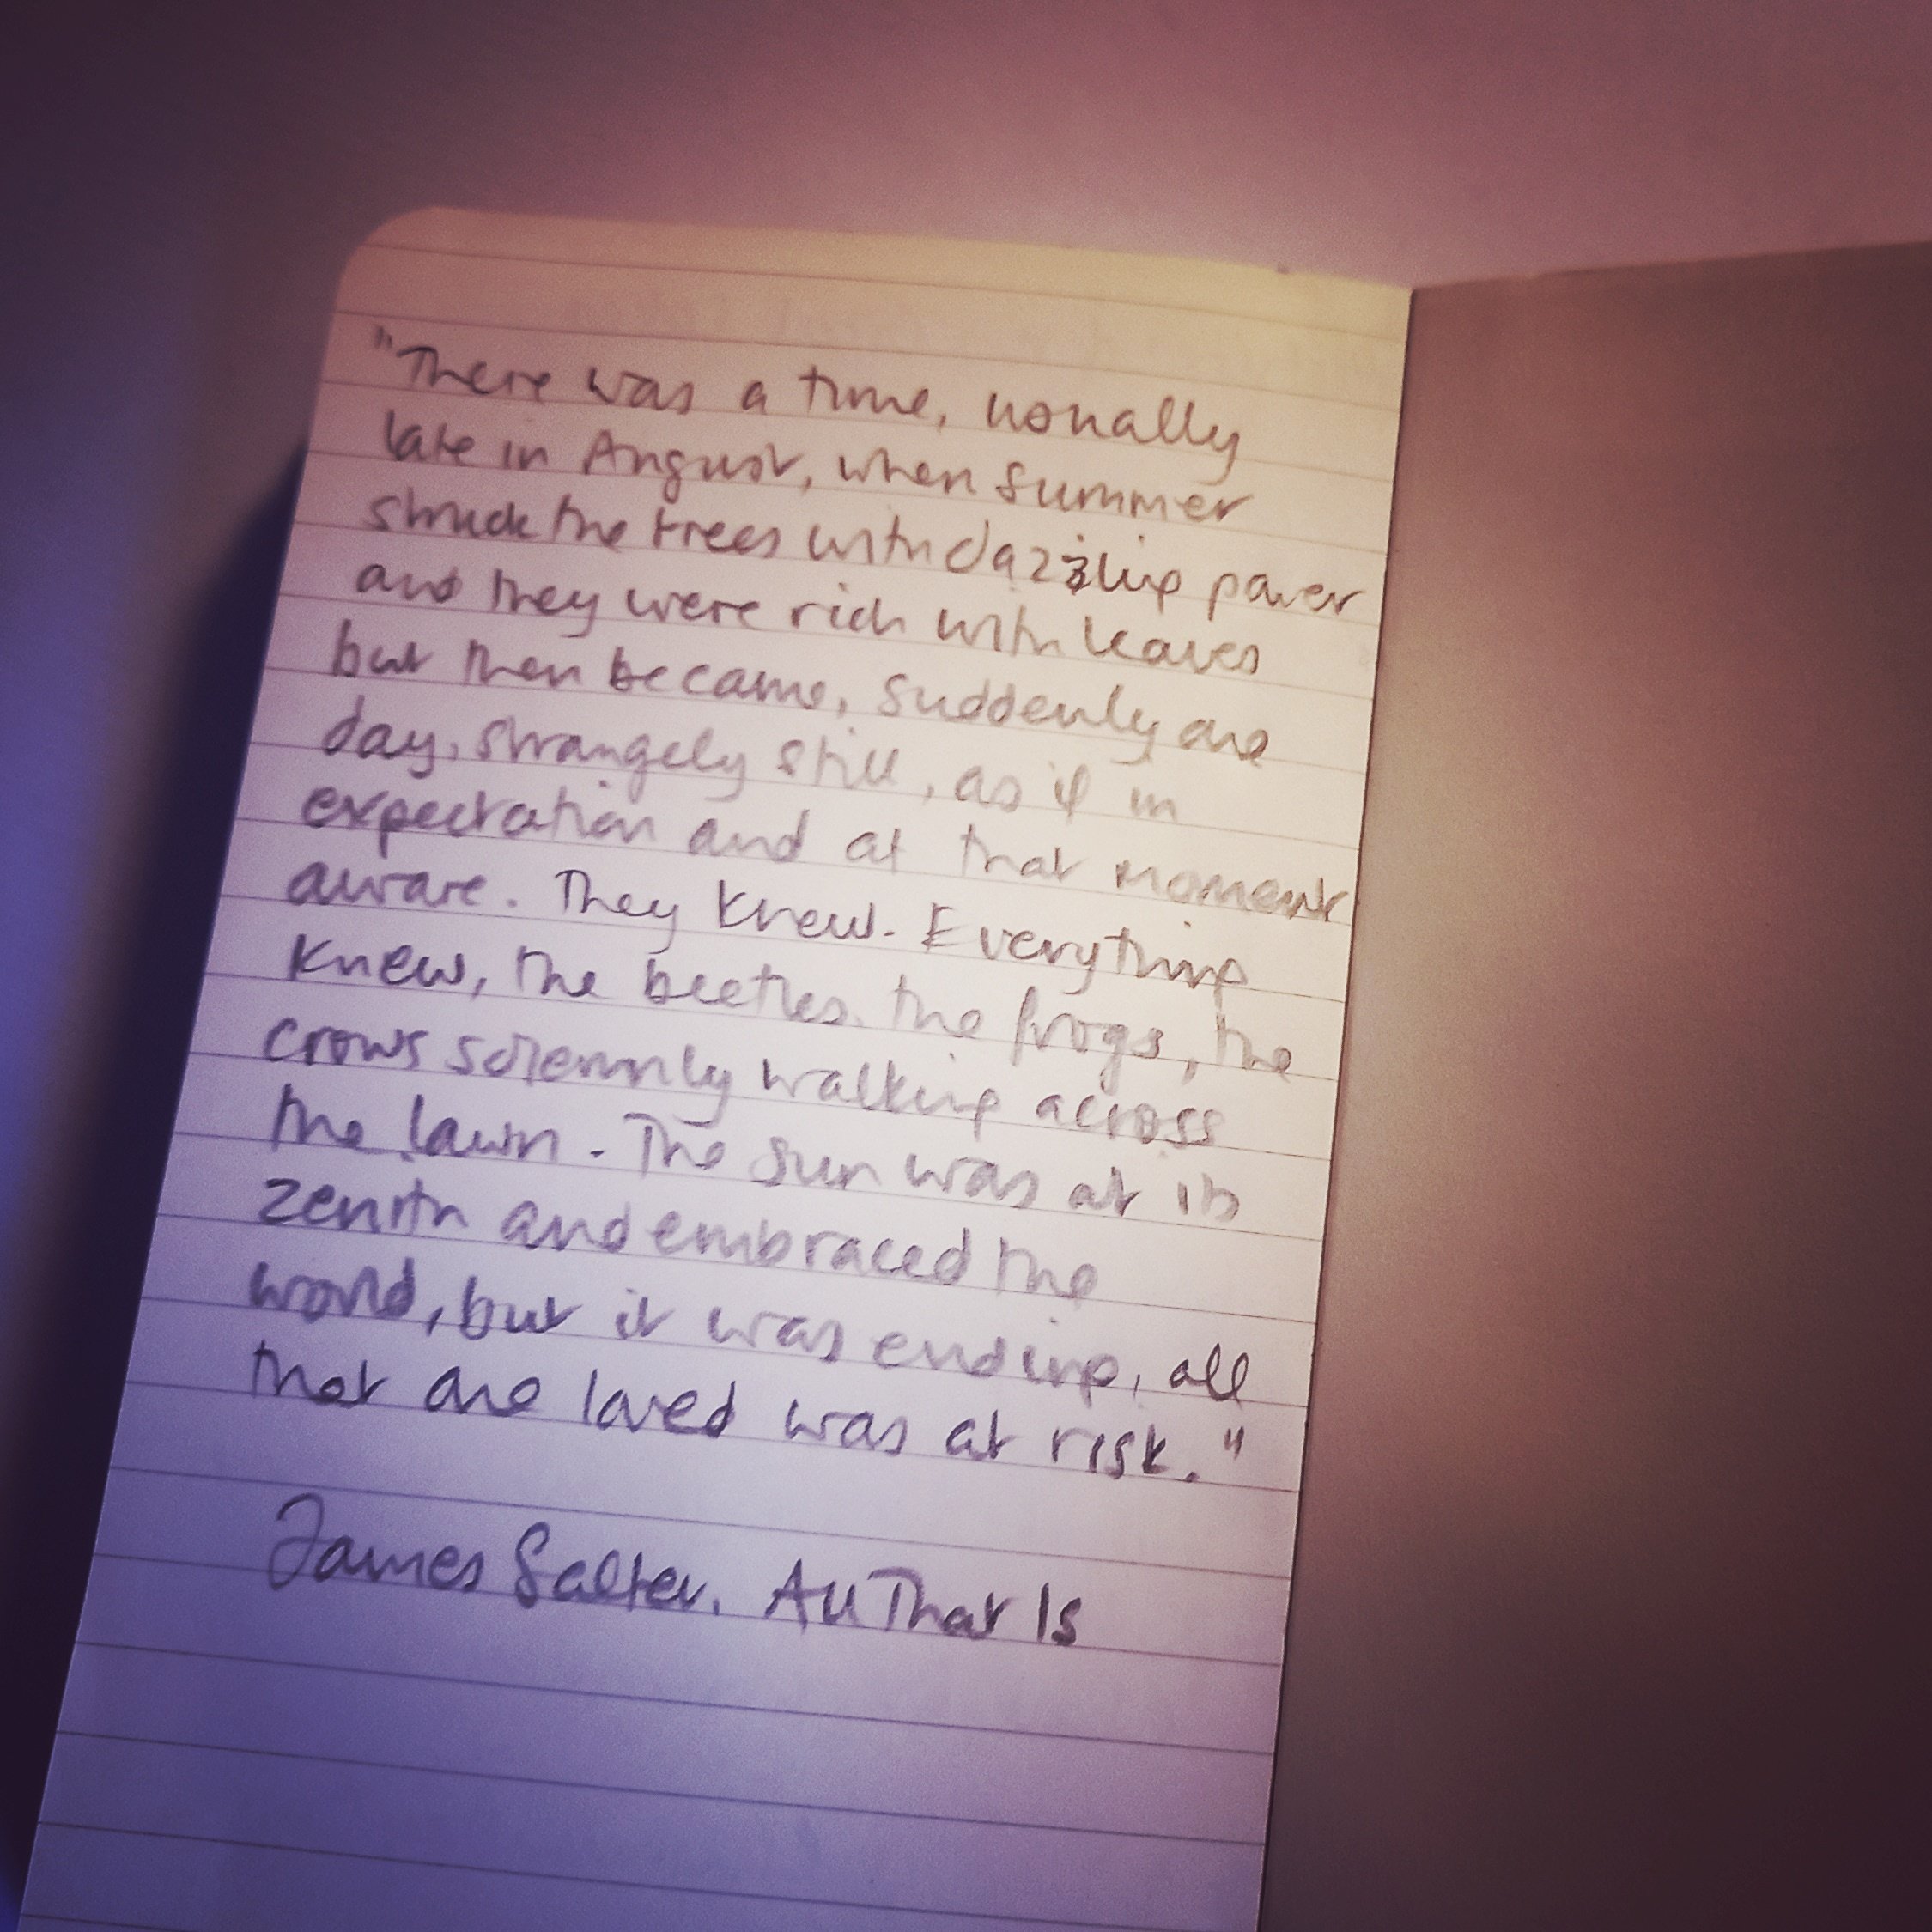 "There was a time, usually
late in August, when summer
struck the trees with dazzling power
and they were rich with leaves
but then became, suddenly one
day, strangely still, as if in
expectation and at that moment
aware. They knew. Everything
knew, the beetles, the frogs, the
crows solemnly walking across
the lawn. The sun was at its
zenith and embraced the
world, but it was ending, all
that one loved was at risk."
James Salter. All That Is